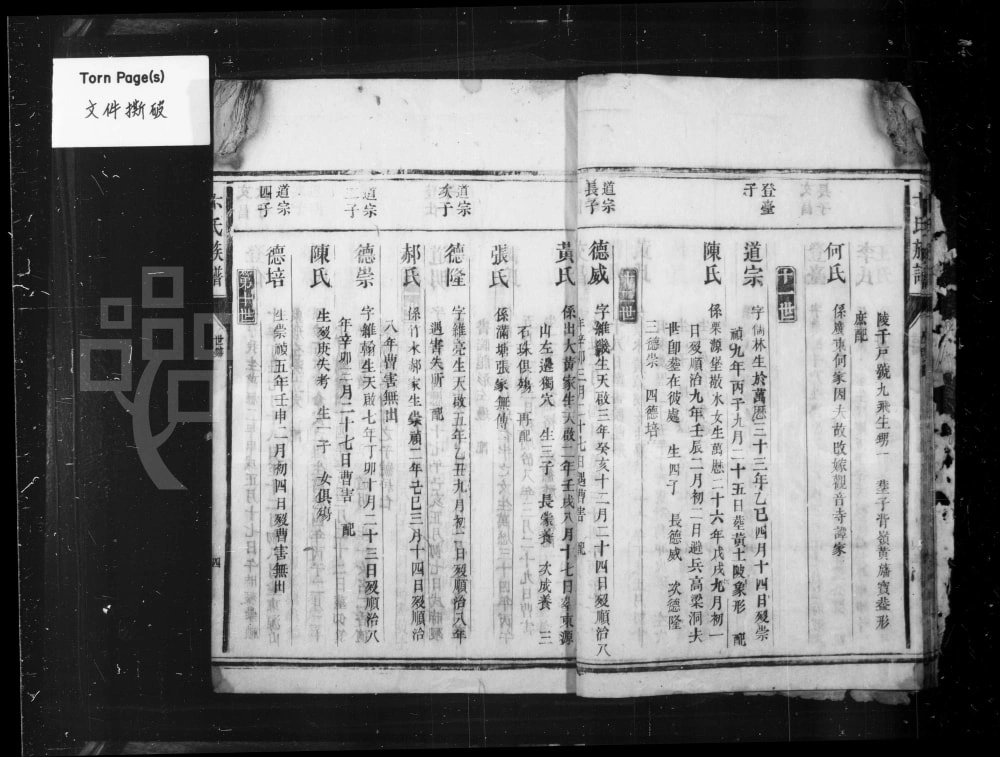 Torn Page(s)
文件撕破
陵千戶號九飛生甥一
庶配
何氏
係廣東何家因夫故改嫁觀音寺譚家
十一世
登臺
子
道宗
字仙林生於萬曆三十三年乙巳四月十四日歿崇
禎九年丙子九月二十五日塟黃土陂象形 配
陳氏
係栗源堡散水女生萬曆二十六年戊戌九月初一
日歿順治九年壬辰二月初二日避兵高梁洞夫
世印塟在彼處 生四子 長德威 次德隆
三德崇 四德培
世
道宗
長子
德威
字維巍生天啟三年癸亥十二月二十四日歿順治八
年辛卯二月二十七日遇曹害 配
黃氏
係出大黃家生天啟二年壬戌八月十七日塟東源
山左邊獨穴 生三子 長榮養 次成養 三
石珠俱殤 再配
張氏
係滿塘張家無傳
道宗
次子
德隆
字維亮生天啟五年乙丑九月初二日歿順治八年
遇害失所 配
郝氏
係竹水郝家生崇禎二年己巳三月十四日歿順治
八年曹害無出
道宗
三子
德崇
字維翰生天啟七年丁卯十月二十三日歿順治八
年辛卯二月二十七日曹害 配
陳氏
生歿庚失考 生一子 女俱殤
道宗
四子
德培
生崇禎五年壬申二月初四日歿曹害無出
第十世
氏族譜
世
四